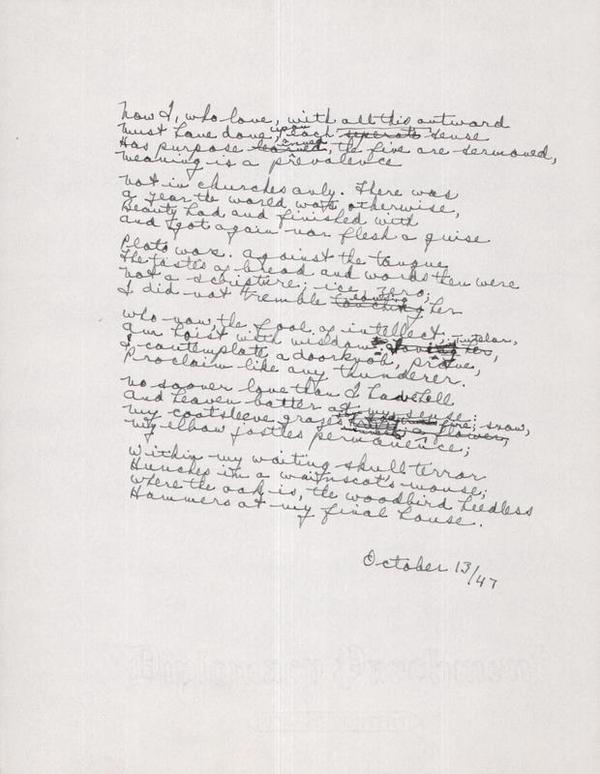 Now I, who love, with all this outward
Must have done, upon each seperate sense
Has purpose learned, the five are sermoned,
Meaning is a prevalence
Not in churches only. There was
A year the world was otherwise,
Beauty had and finished with
And got again nor flesh a guise
Plato wax. Against the tongue
The tastes of bread and words then were
Not a scripture; ice, zero;
I did not tremble touching her
Who now the fool of intellect,
Am hoist with wisdom, tutelar,
I contemplate a doorknob, prove,
Proclaim like any thunderer.
No sooner love than I have hell
And heaven batter at my sense; snow,
My coatsleeve grazes fire; a flower,
My elbow jostles permanence;
Within my waiting skull terror
Hunches in a wainscot's mouse;
Where the oak is, the woodbird heedless
Hammers at my final house.
October 13/47